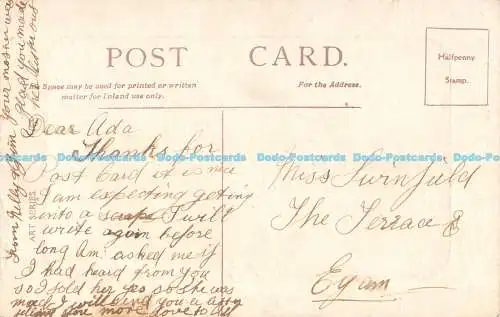 POST CARD.
This Space may be used for printed or written
matter for Inland use only.
For the Address.
Halfpenny
Stamp.
ART SERIES
Dear Ada
Thanks for
Post Card it is nice
I am expecting getting
into a scrape I will
write again before
long Am asked me if
I had heard from you
so I told her yes so she was
I will send you a
more love to all
From Lilly
your mother was
glad you made
her out
Miss Turnfield
The Terrace
Eyam
Dodo-Postcards Dodo-Postcards Dodo-Postcards Dodo-Postcards Dodo-Postcards